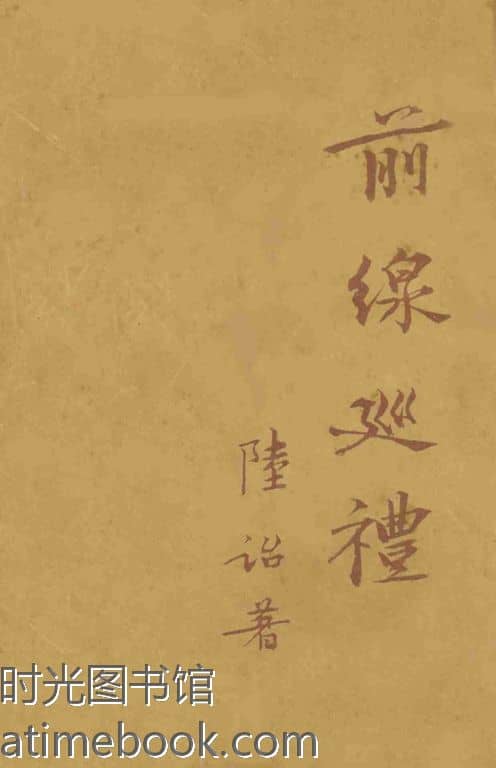 前線廵禮
陸詒著
时光图书馆
atimebook.com